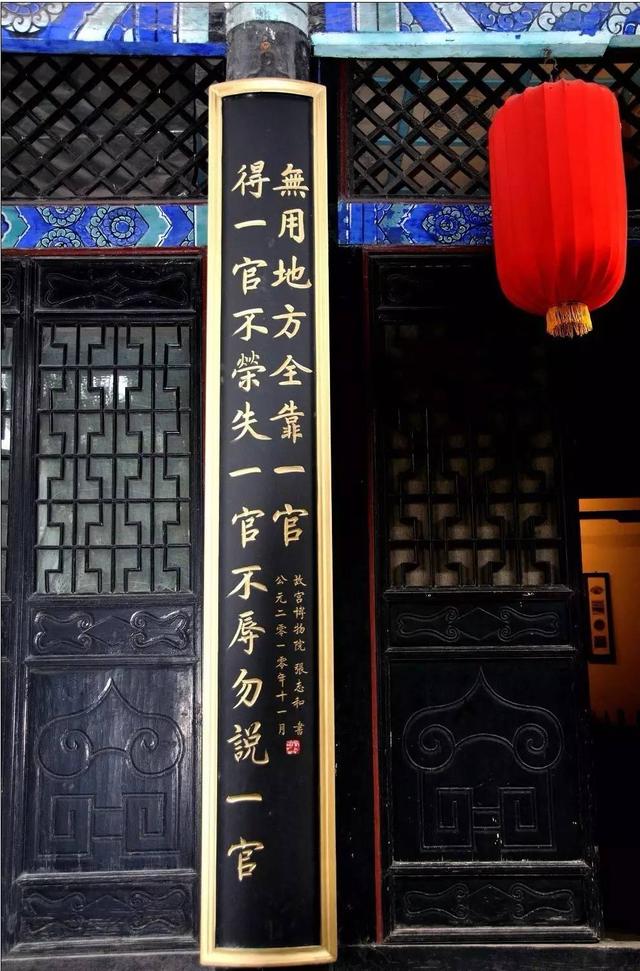 得一官不榮失一官不辱勿說一官
無用地方全靠一官
公元二〇一〇年十一月
故宮博物院 張志和 書